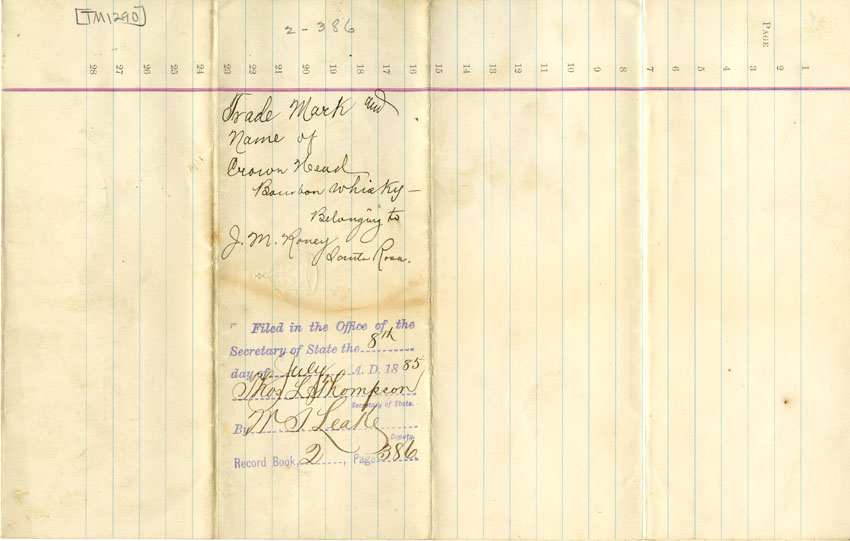 [TM1290]
2-386
PAGE
1
2
3
4
5
6
7
8
9
10
11
12
13
14
15
16
17
18
19
20
21
22
23
24
25
26
27
28
Trade Mark and
Name of
Crown Head
Bourbon Whisky—
Belonging to
J. M. Roney
Santa Rosa.
Filed in the Office of the
Secretary of State the 8th
day of July A. D. 1885
Thos L Thompson
Secretary of State.
By W S Leake
Deputy.
Record Book, 2, Page 386